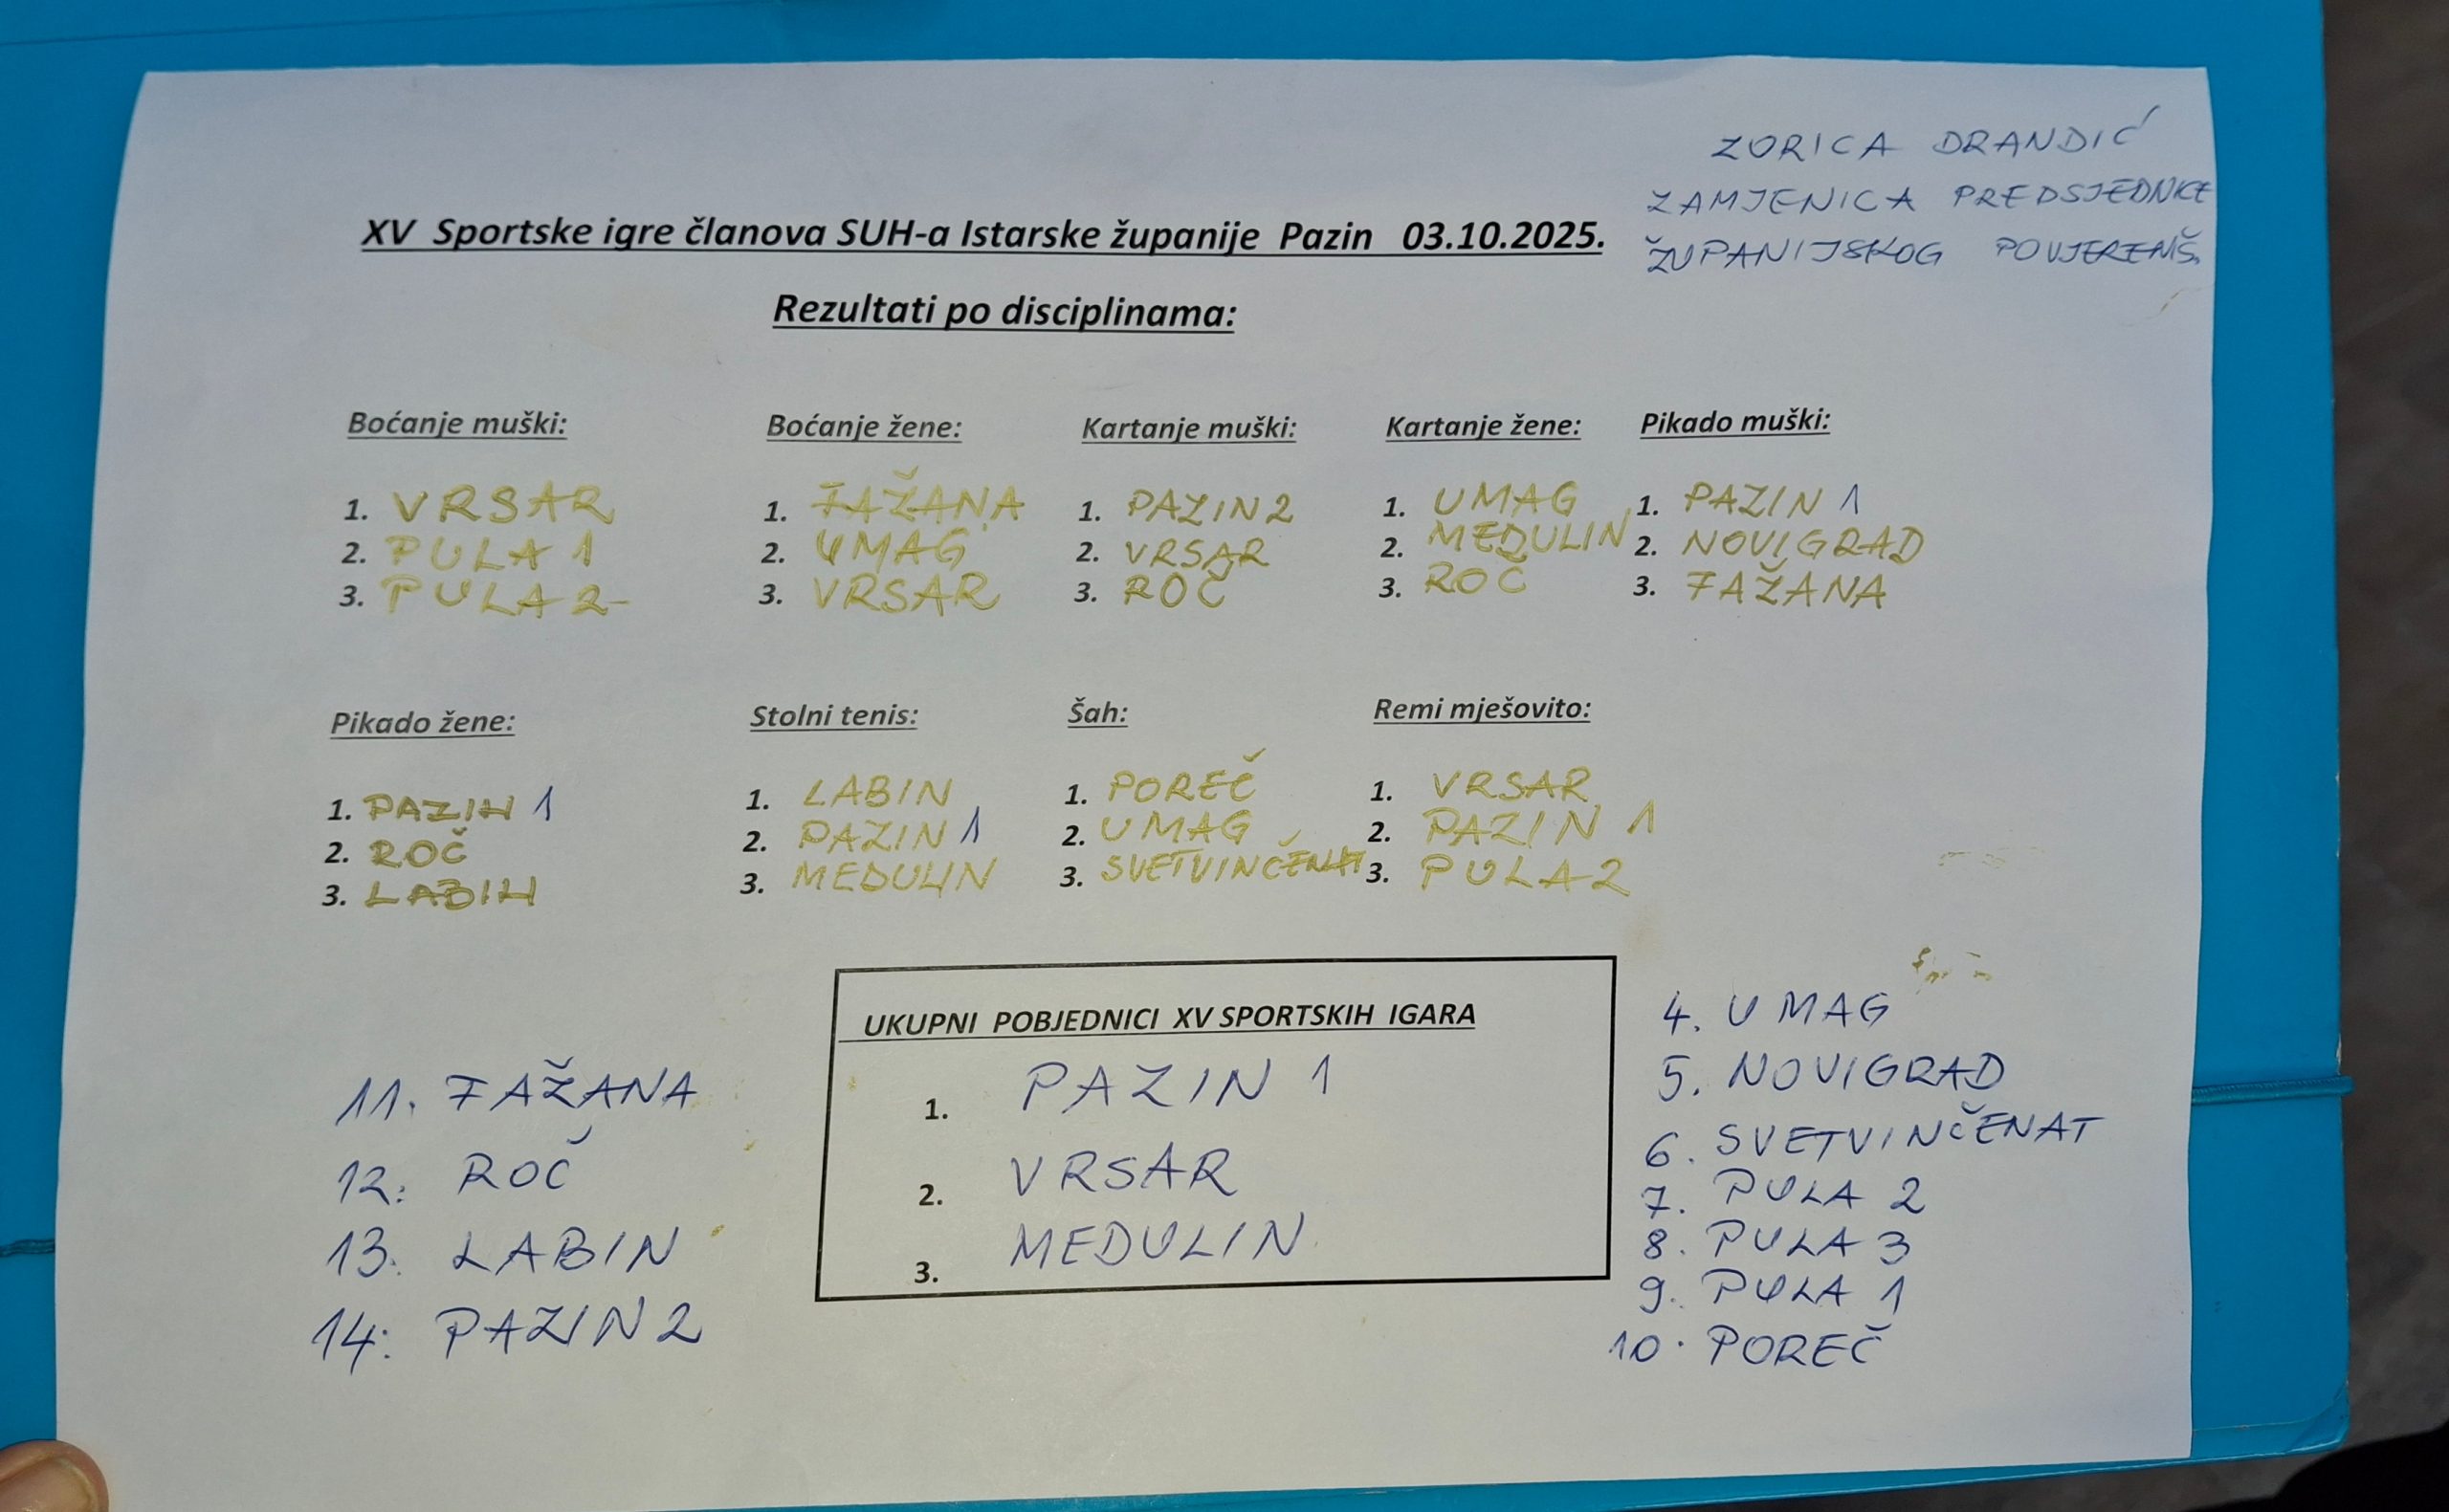 ZORICA DRANDIĆ
ZAMJENICA PREDSJEDNICE
ŽUPANIJSKOG POVJERENŠ.
XV Sportske igre članova SUH-a Istarske županije Pazin 03.10.2025.
Rezultati po disciplinama:
Boćanje muški:
1. VRSAR
2. PULA 1
3. PULA 2
Boćanje žene:
1. FAŽANA
2. UMAG
3. VRSAR
Kartanje muški:
1. PAZIN 2
2. VRSAR
3. ROČ
Kartanje žene:
1. UMAG
2. MEDULIN
3. ROČ
Pikado muški:
1. PAZIN 1
2. NOVIGRAD
3. FAŽANA
Pikado žene:
1. PAZIN 1
2. ROČ
3. LABIN
Stolni tenis:
1. LABIN
2. PAZIN 1
3. MEDULIN
Šah:
1. POREČ
2. UMAG
3. SVETVINČENAT
Remi mješovito:
1. VRSAR
2. PAZIN 1
3. PULA 2
UKUPNI POBJEDNICI XV SPORTSKIH IGARA
1. PAZIN 1
2. VRSAR
3. MEDULIN
4. UMAG
5. NOVIGRAD
6. SVETVINČENAT
7. PULA 2
8. PULA 3
9. PULA 1
10. POREČ
11. FAŽANA
12. ROČ
13. LABIN
14. PAZIN 2